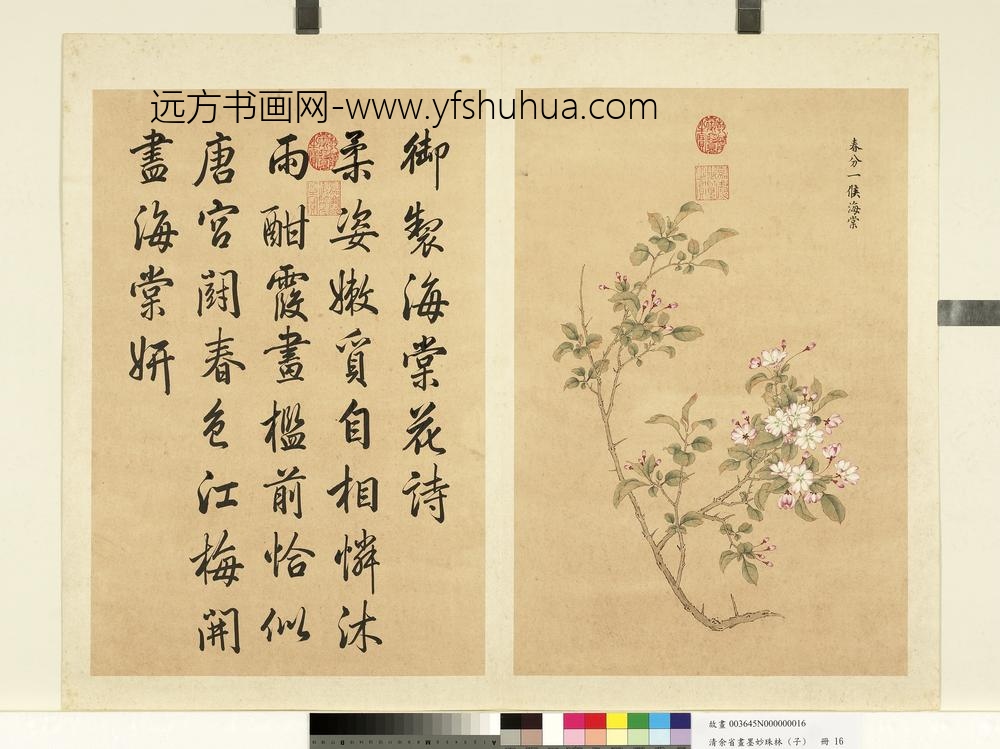 远方书画网-www.yfshuhua.com
春分一候海棠
御製海棠花詩
柔姿嫩質自相憐沐
雨酣霞畫檻前恰似
唐宮鬪春色江梅開
盡海棠妍
故畫 003645N000000016
清余省畫墨妙珠林（子） 冊 16